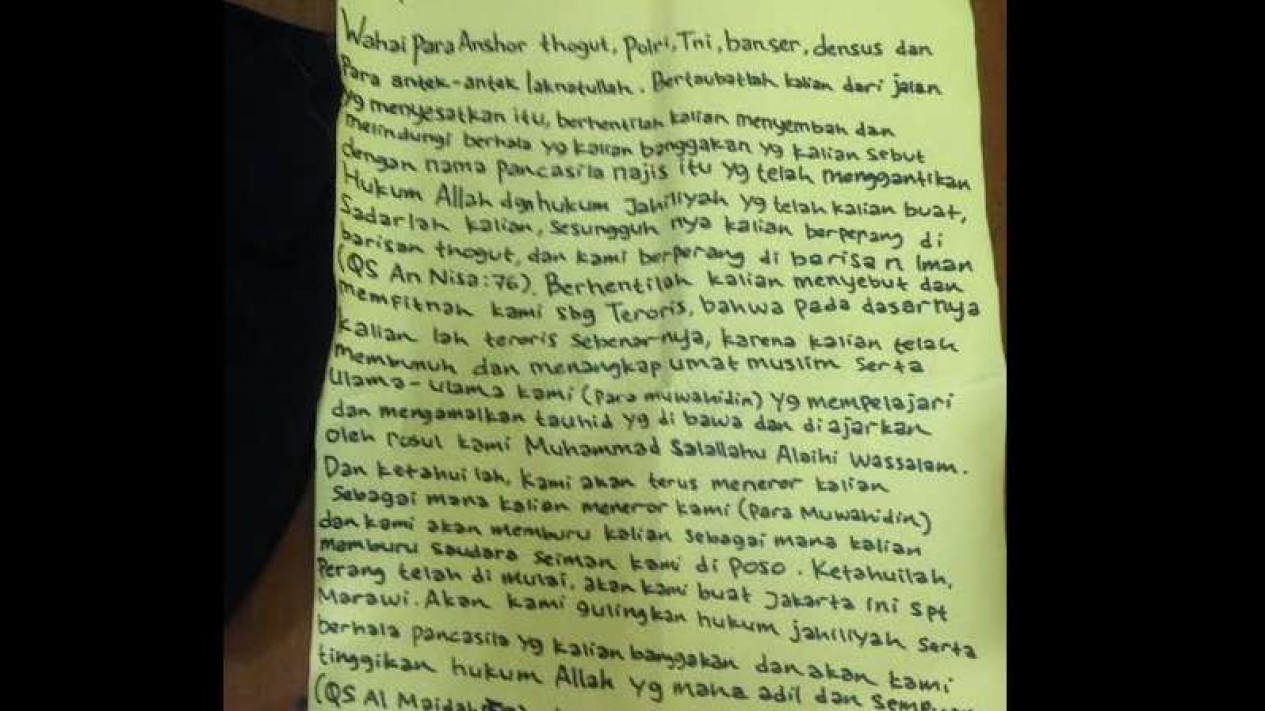 Wahai para Anshor thogut, polri, Tni, banser, densus dan
Para antek-antek laknatullah. Bertaubatlah kalian dari jalan
yg menyesatkan itu, berhentilah kalian menyembah dan
melindungi berhala yg kalian banggakan yg kalian sebut
dengan nama pancasila najis itu yg telah menggantikan
Hukum Allah dgn hukum Jahiliyah yg telah kalian buat,
Sadarlah kalian, sesungguh nya kalian berperang di
barisan thogut, dan kami berperang di barisan Iman
(QS An Nisa:76). Berhentilah kalian menyebut dan
memfitnah kami sbg Teroris, bahwa pada dasarnya
kalian lah teroris sebenarnya, karena kalian telah
membunuh dan menangkap umat muslim serta
ulama-ulama kami (para muwahidin) yg mempelajari
dan mengamalkan tauhid yg di bawa dan diajarkan
oleh rosul kami Muhammad Salallahu Alaihi Wassalam.
Dan ketahui lah, kami akan terus meneror kalian
Sebagai mana kalian meneror kami (para Muwahidin)
dan kami akan memburu kalian sebagai mana kalian
memburu saudara seiman kami di poso. Ketahuilah,
Perang telah di mulai, akan kami buat Jakarta ini spt
Marawi. Akan kami gulingkan hukum jahiliyah serta
berhala pancasila yg kalian banggakan dan akan kami
tinggikan hukum Allah yg maha adil dan
(QS Al Maidah